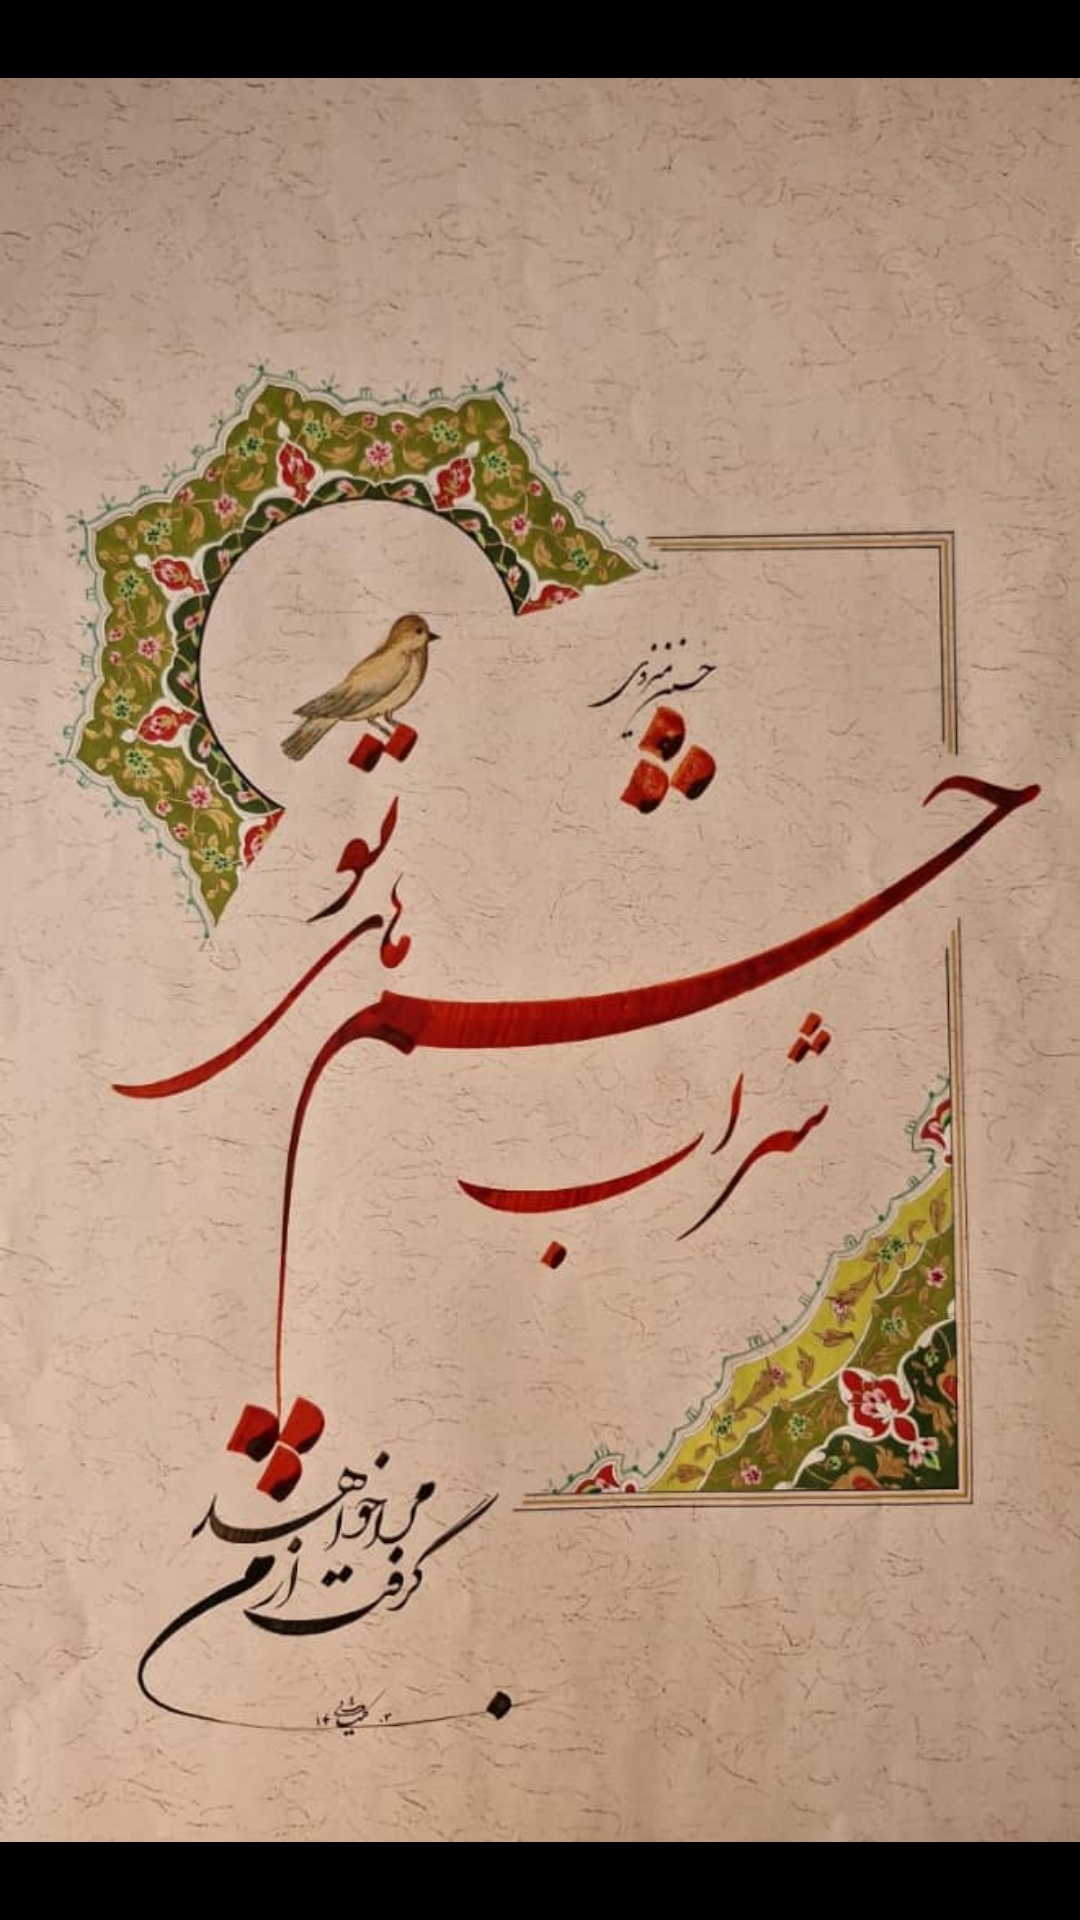 حسین منزوی
شراب
چشم
های
تو
مرا خواهد
گرفت از من